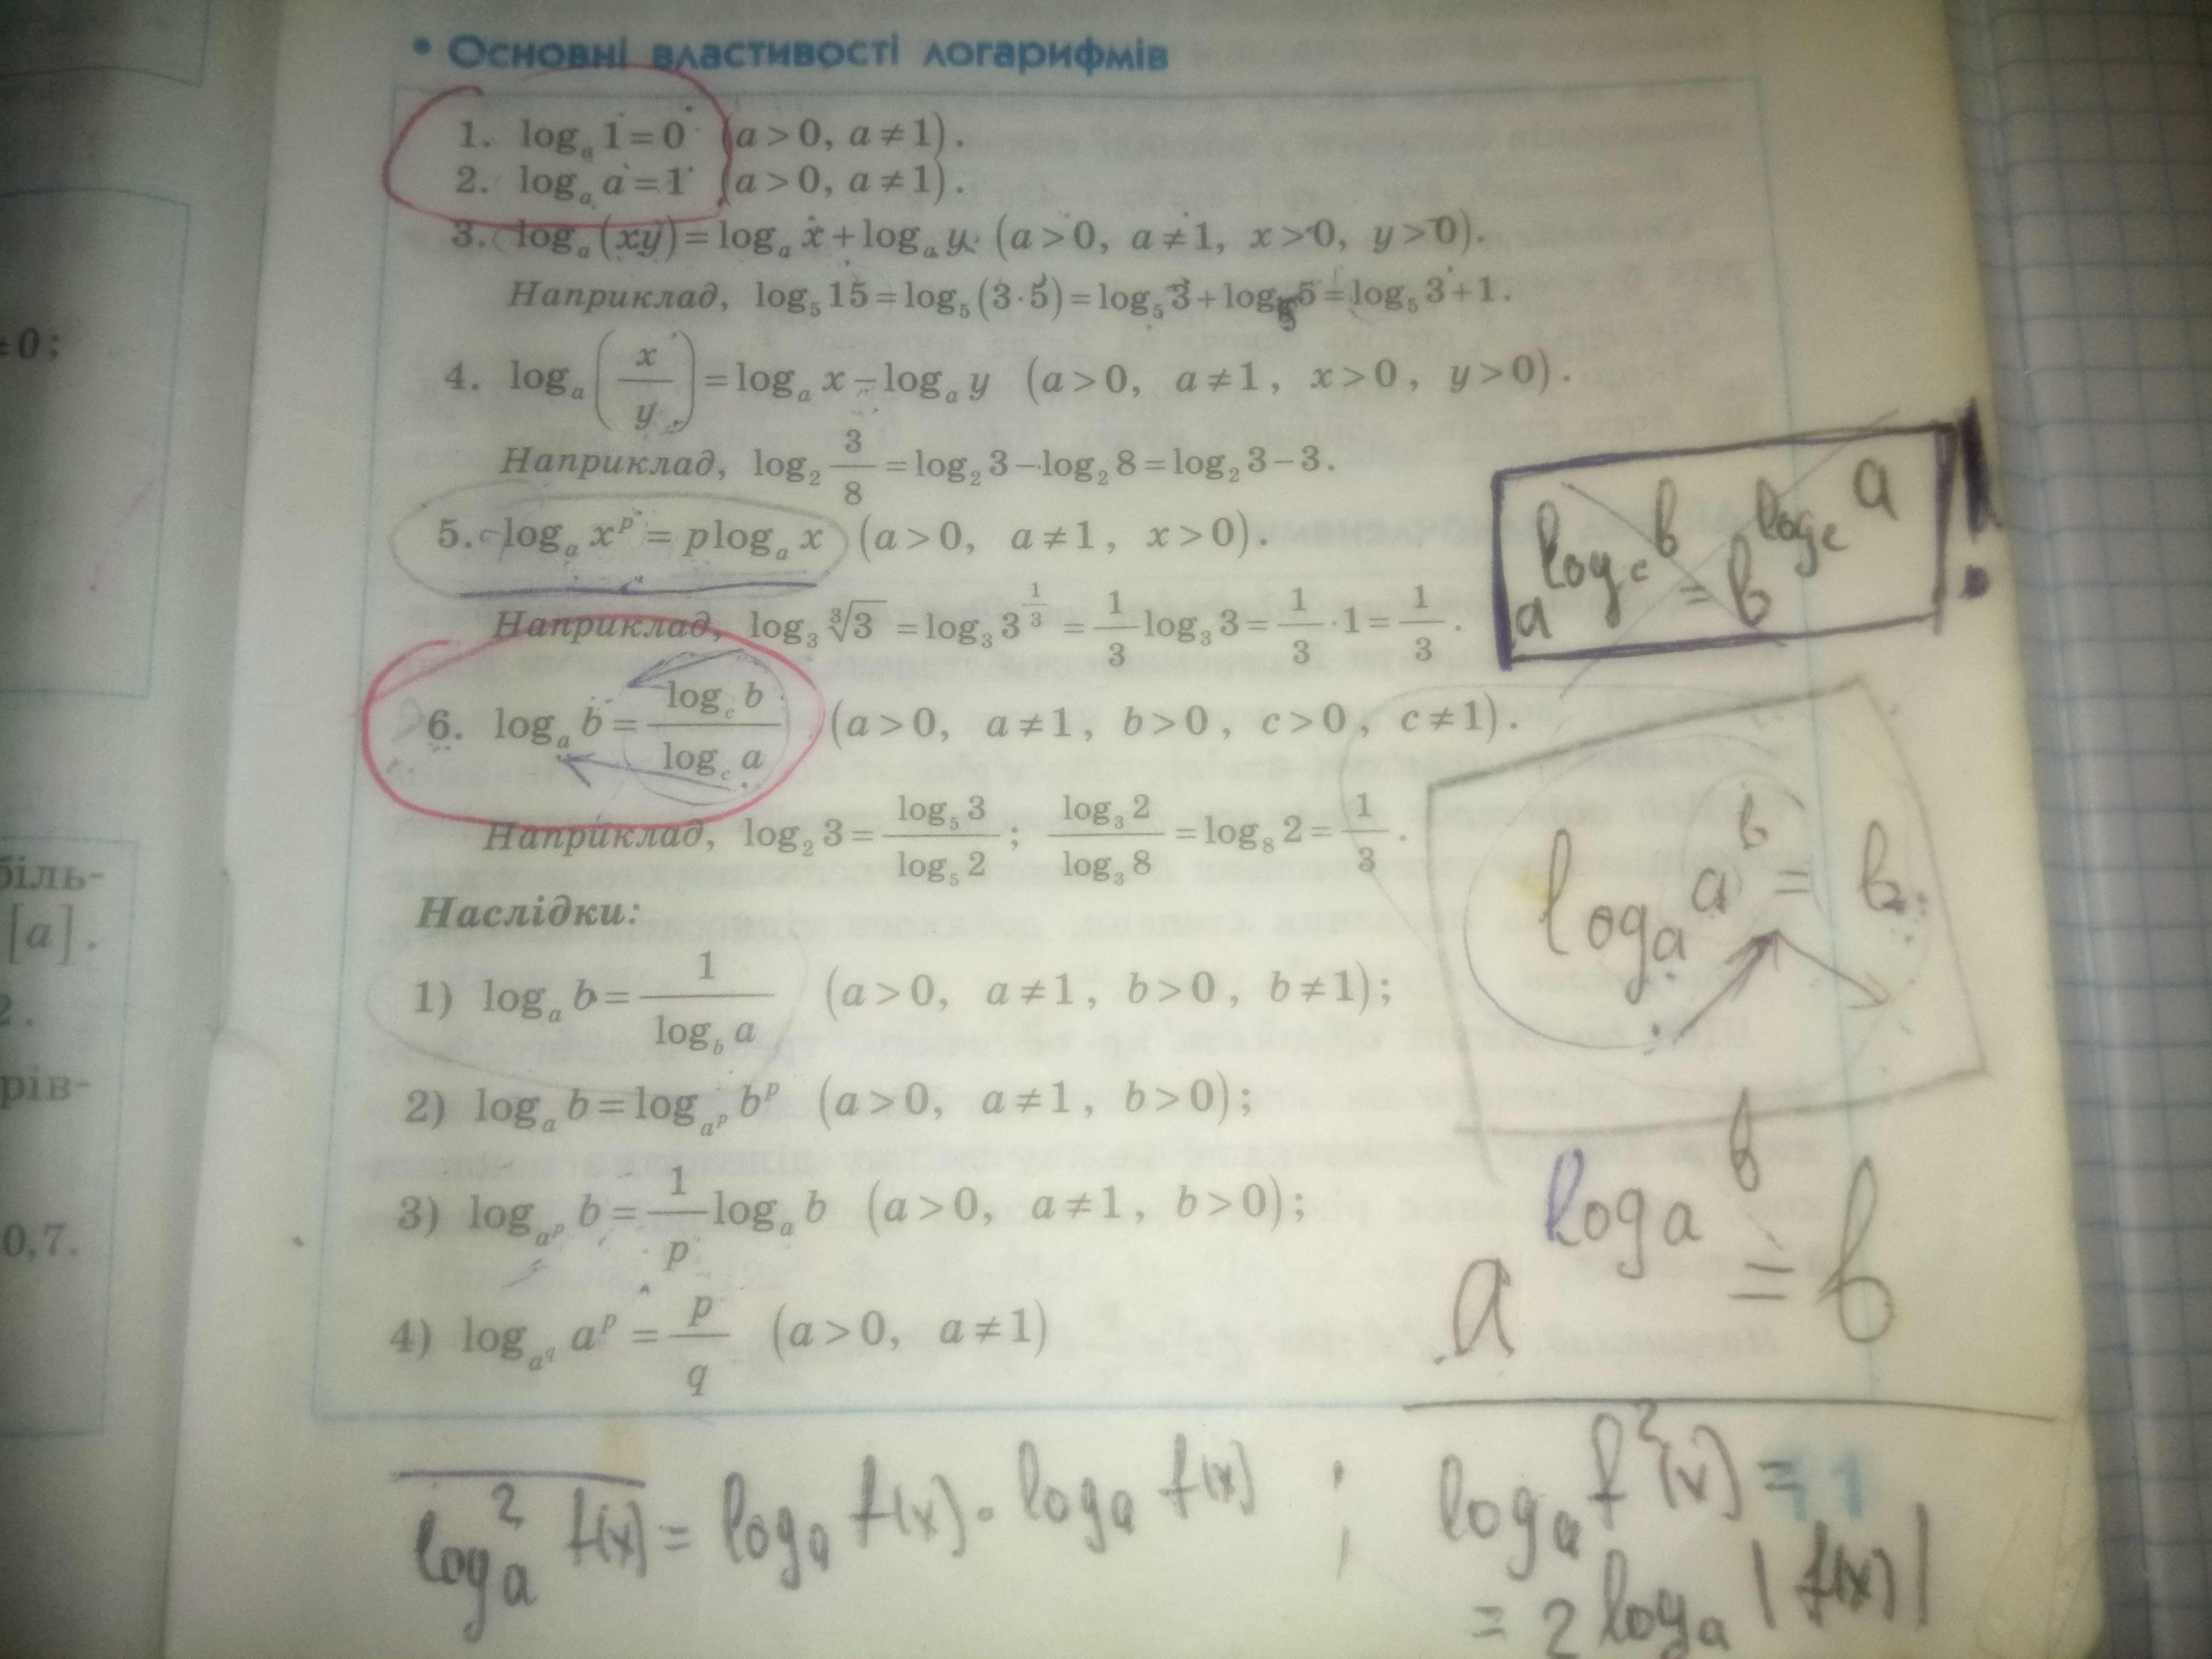 • Основні властивості логарифмів
1. logₐ 1 = 0 (a > 0, a ≠ 1).
2. logₐ a = 1 (a > 0, a ≠ 1).
3. logₐ (xy) = logₐ x + logₐ y (a > 0, a ≠ 1, x > 0, y > 0).
Наприклад, log₅ 15 = log₅ (3 · 5) = log₅ 3 + log₅ 5 = log₅ 3 + 1.
4. logₐ (x/y) = logₐ x − logₐ y (a > 0, a ≠ 1, x > 0, y > 0).
Наприклад, log₂ 3/8 = log₂ 3 − log₂ 8 = log₂ 3 − 3.
5. logₐ x^p = p logₐ x (a > 0, a ≠ 1, x > 0).
Наприклад, log₃ ∛3 = log₃ 3^(1/3) = 1/3 log₃ 3 = 1/3 · 1 = 1/3.
6. logₐ b = log_c b / log_c a (a > 0, a ≠ 1, b > 0, c > 0, c ≠ 1).
Наприклад, log₂ 3 = log₅ 3 / log₅ 2; log₃ 2 / log₃ 8 = log₈ 2 = 1/3.
Наслідки:
1) logₐ b = 1 / log_b a (a > 0, a ≠ 1, b > 0, b ≠ 1);
2) logₐ b = log_(a^p) b^p (a > 0, a ≠ 1, b > 0);
3) log_(a^p) b = 1/p logₐ b (a > 0, a ≠ 1, b > 0);
4) log_(a^q) a^p = p/q (a > 0, a ≠ 1)
a^(log_c b) = b^(log_c a) !
logₐ a^b = b
a^(logₐ b) = b
logₐ² f(x) = logₐ f(x) · logₐ f(x) ;
logₐ f²(x) =
= 2 logₐ |f(x)|
≠0;
біль-
[a].
2.
рів-
0,7.